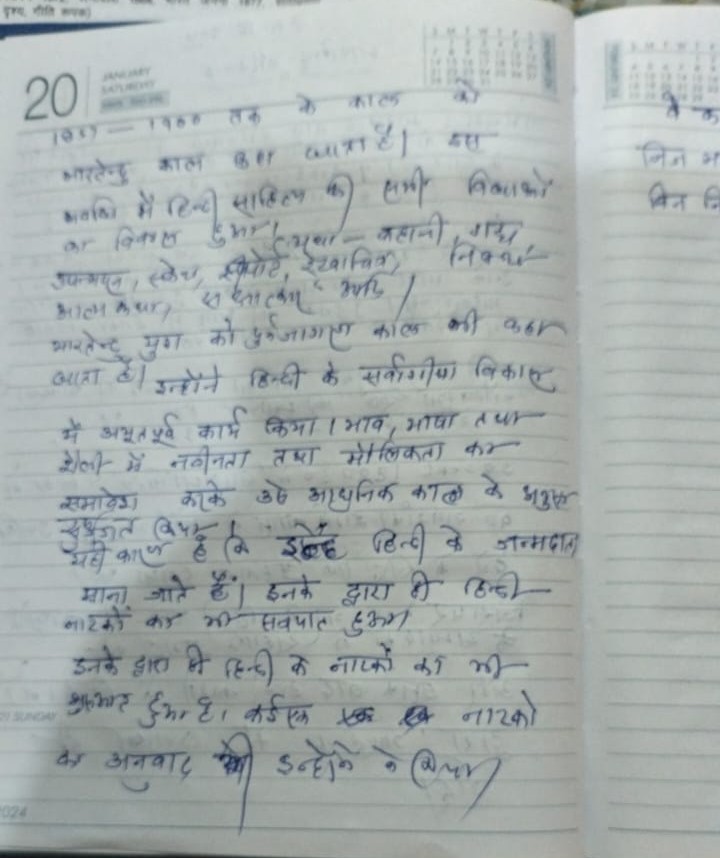 दृश्य, गीति रूपक)
20
JANUARY
SATURDAY
1857 — 1900 तक के काल को
भारतेन्दु काल कहा जाता है। इस
अवधि में हिन्दी साहित्य की सभी विधाओं
का विकास हुआ। यथा — कहानी, गद्य
उपन्यास, स्केच, रिपोर्ट, रेखाचित्र, निबन्ध
आत्मकथा, आदि।
भारतेन्दु युग को पुर्नजागरण काल भी कहा
जाता है। इन्होंने हिन्दी के सर्वांगीण विकास
में अभूतपूर्व कार्य किया। भाव, भाषा तथा
शैली में नवीनता तथा मौलिकता का
समावेश करके उसे आधुनिक काल के अनुरूप
किया।
यही कारण है कि इन्हें हिन्दी के जन्मदाता
माना जाते हैं। इनके द्वारा ही हिन्दी
नाटकों का भी सूत्रपात हुआ।
इनके द्वारा ही हिन्दी के नाटकों का भी
शुरुआत हुआ है। कईएक नाटकों
का अनुवाद भी इन्होंने ने किया।
SUNDAY
2024